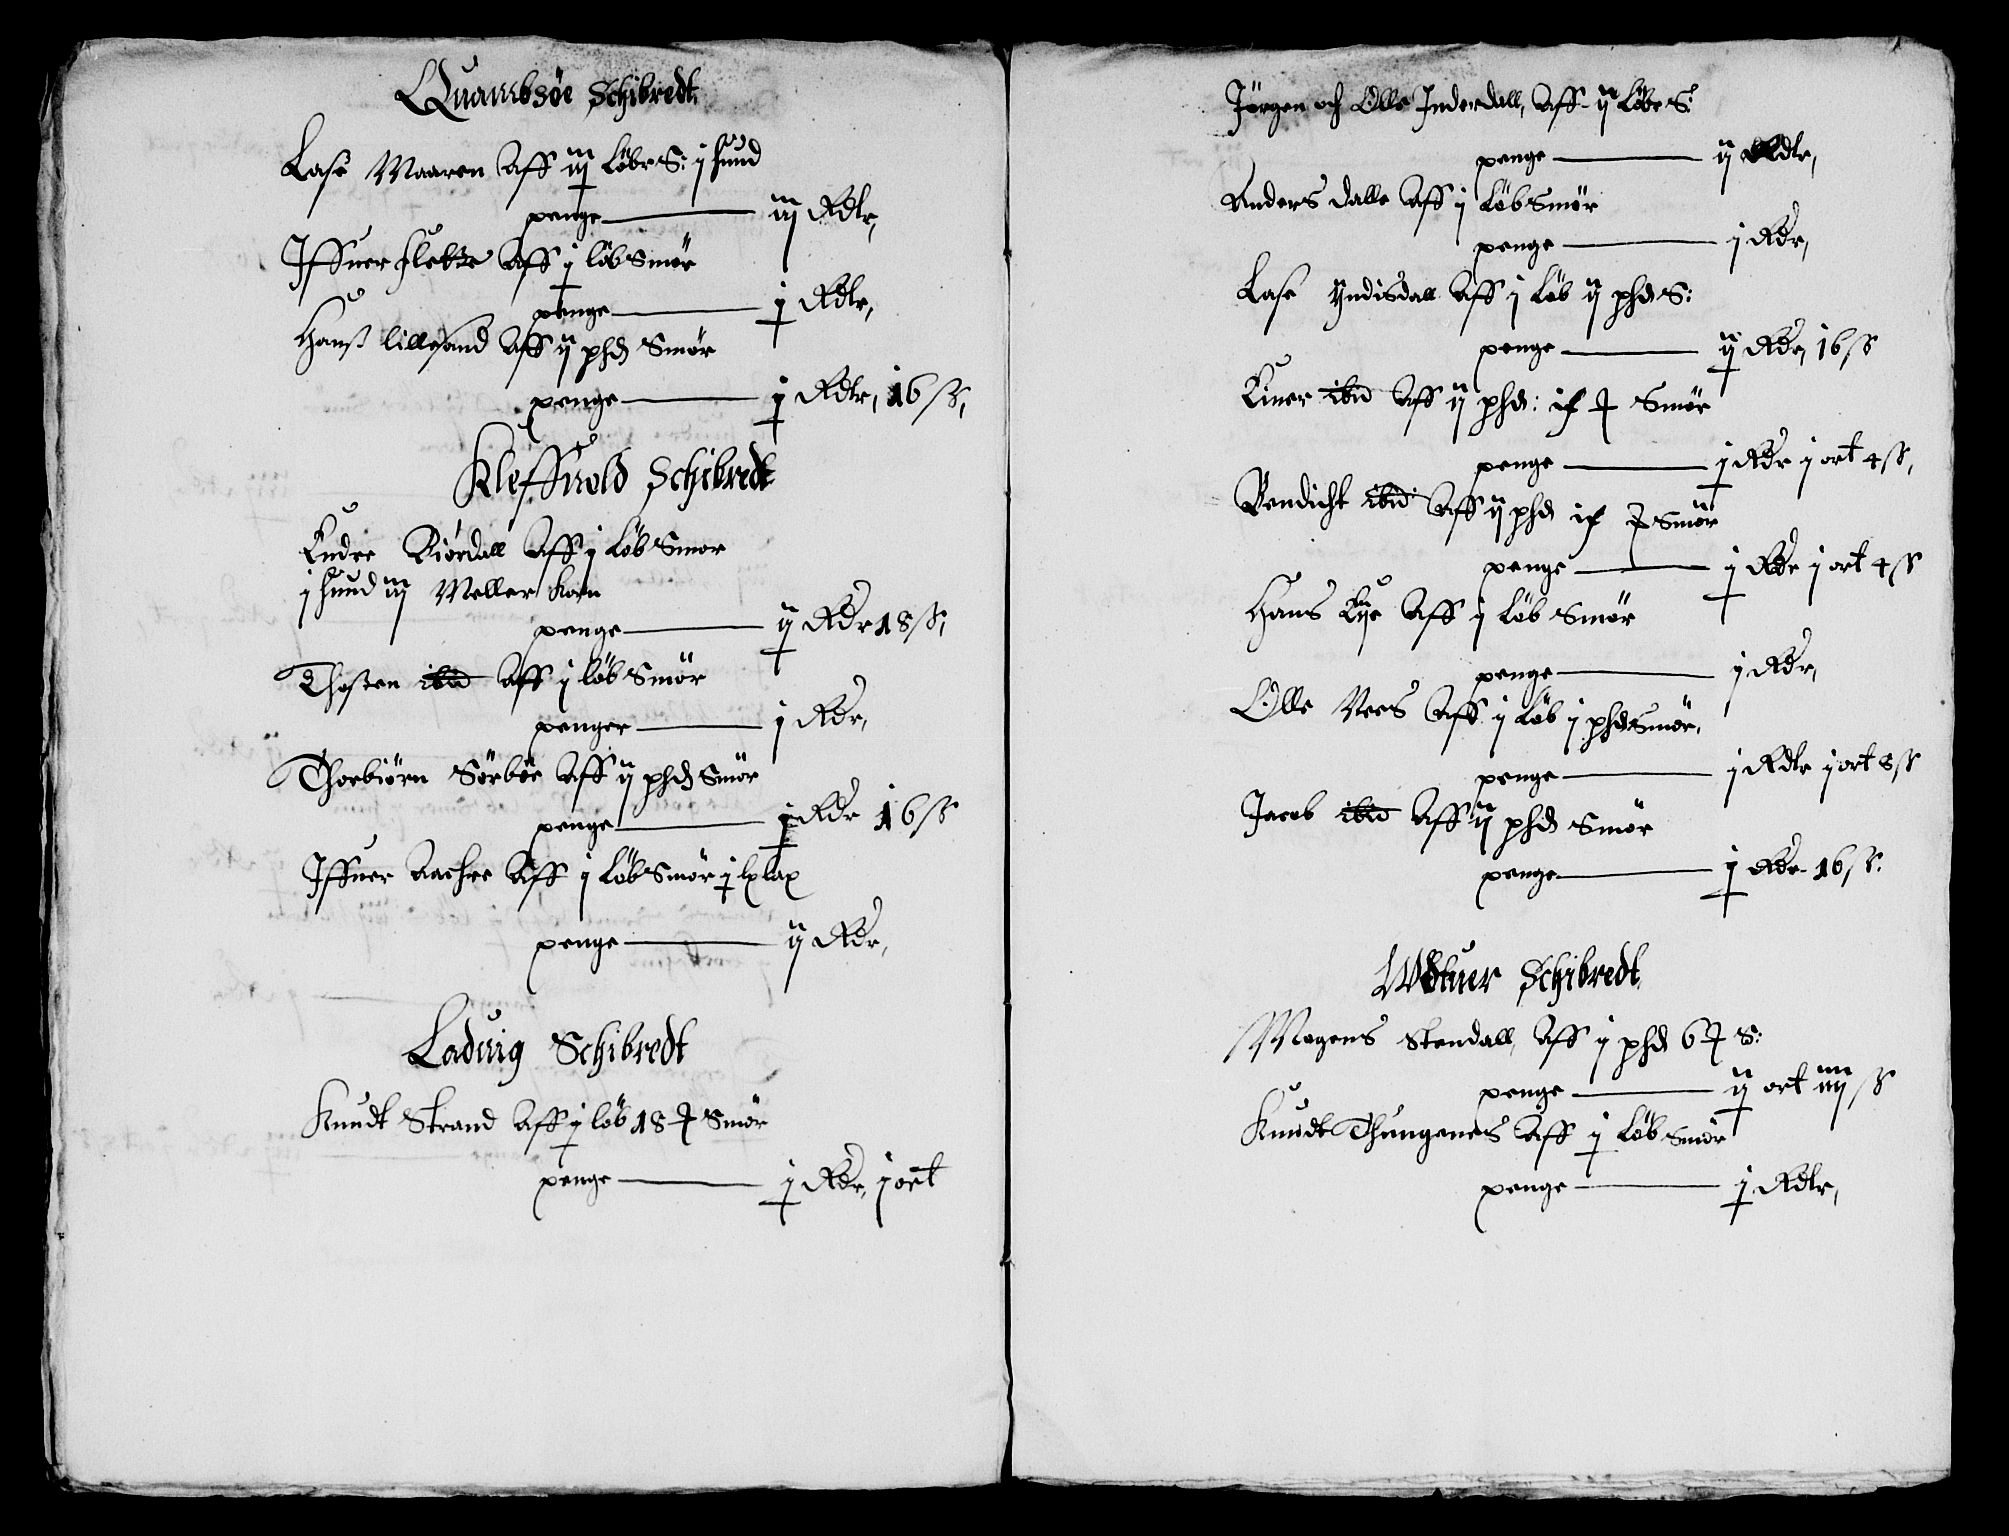 Quambsøe Schibredt
Lase Maaren Aff iij Løbe S: j hund
penge — iij Rdlr,
Iffuer flekke Aff j løb Smør
penge — j Rdlr,
Hanß lillesand Aff ij phd Smør
penge — j Rdlr, 16 ß,
Kleffuold Schibredt
Endre Biørdall Aff j Løb Smør
j hund iij Meller Korn
penge — ij Rdr 18 ß,
Thosten ibid Aff j løb Smør
penger — j Rdr,
Thorbiørn Sørbøe Aff ij phd Smør
penge — j Rdr 16 ß
Iffuer Aachre Aff j Løb Smør j lx lax
penge — ij Rdr,
Laduig Schibredt
Knudt Strand Aff j løb 18 ⅌ Smør
penge — j Rdr, j ort
Jørgen och Olle Inderdall, Aff ij Løbe S:
penge — ij Rdlr,
Anders dalle Aff j Løb Smør
penge — j Rdr,
Lase Yndisdall Aff j Løb ij phd S:
penge — ij Rdr, 16 ß
Einer ibid Aff ij phd: if ⅌ Smør
penge — j Rdr j ort 4 ß,
Bendicht ibid Aff ij phd if ⅌ Smør
penge — j Rdr j ort 4 ß
Hans Eye Aff j Løb Smør
penge — j Rdr,
Olle Nees Aff j Løb j phd Smør,
penge — j Rdlr j ort 8 ß
Jacob ibid Aff ij phd Smør
penge — j Rdr 16 ß.
Wdtuer Schibredt
Mogens Stendall, Aff j phd 6 ⅌ S:
penge — ij ort iiij ß
Knudt Thungenes Aff j Løb Smør
penge — j Rdlr,